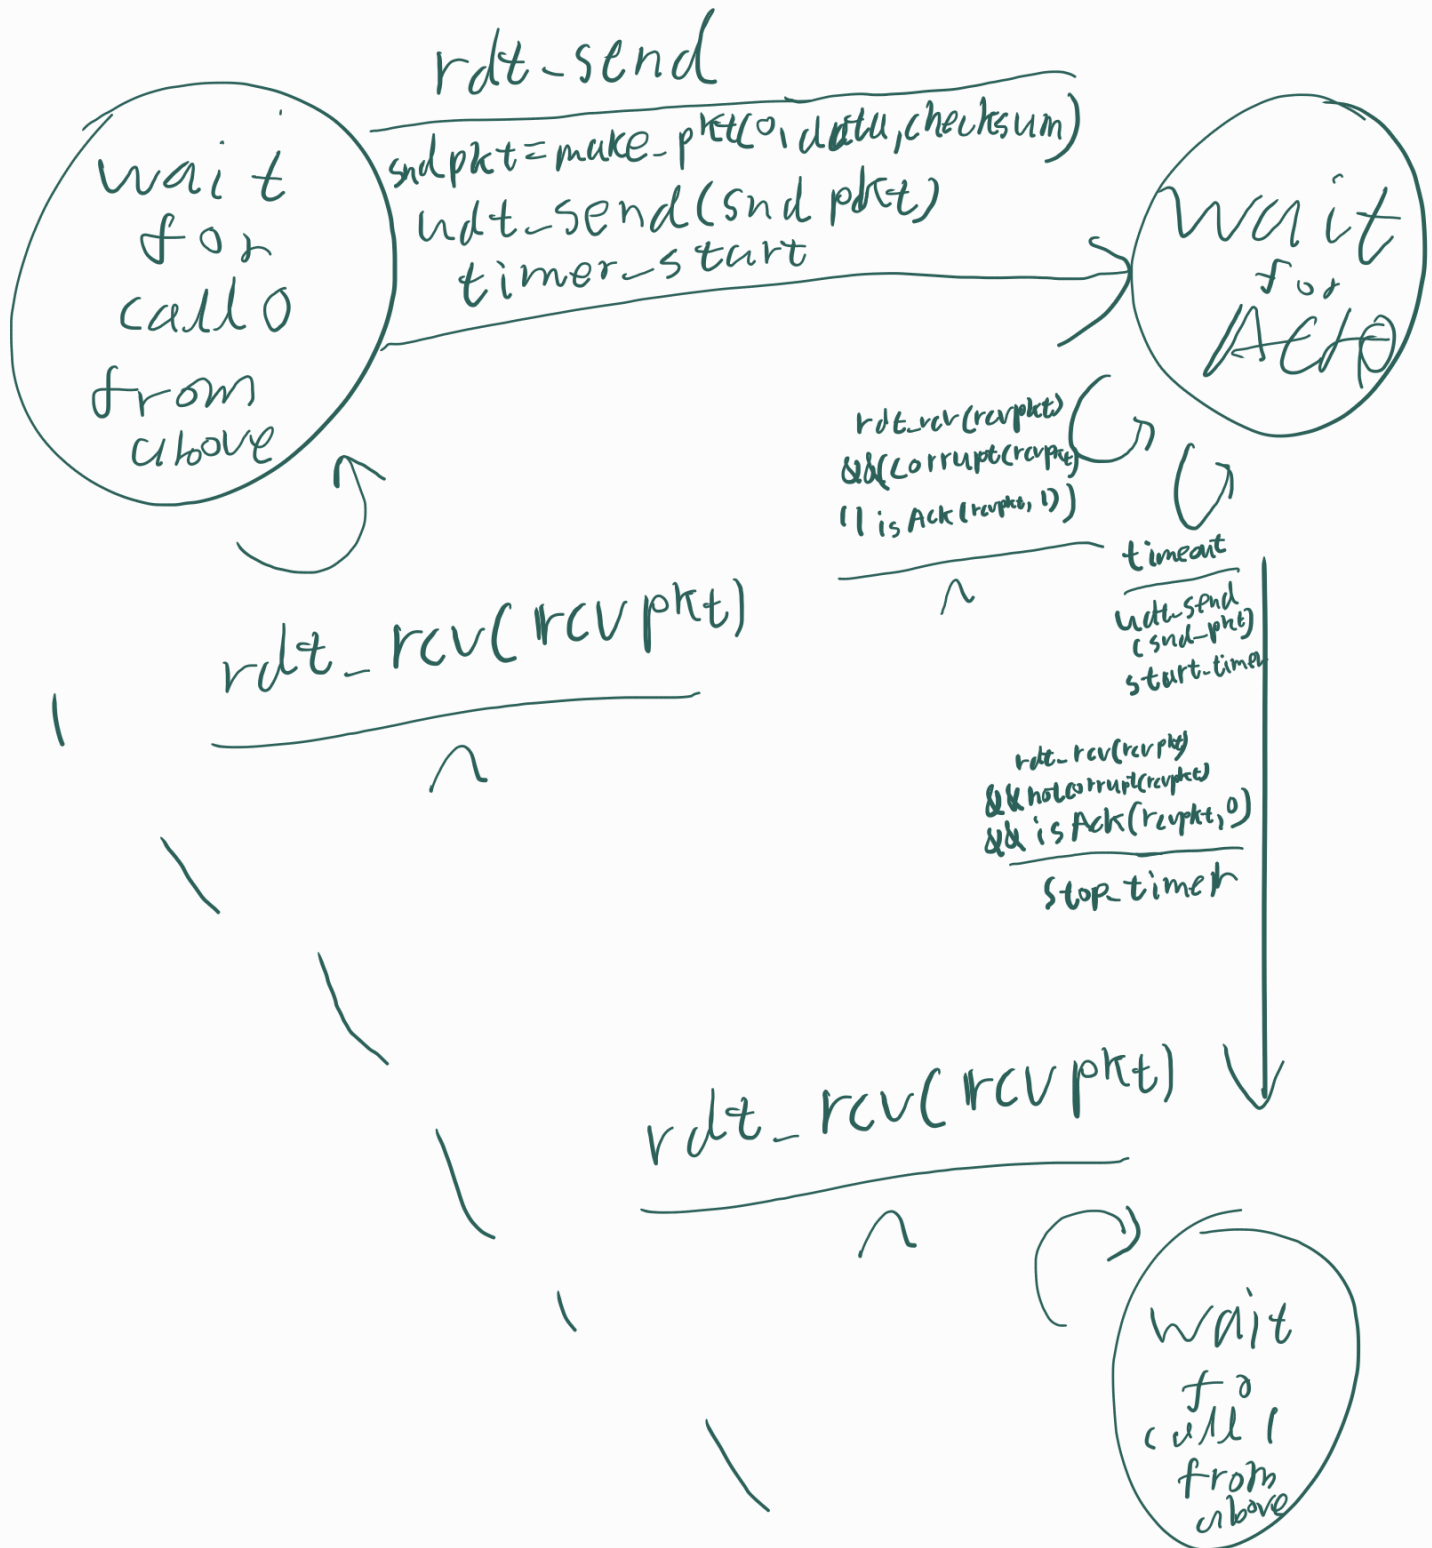 rdt_send
sndpkt=make_pkt(0,data,checksum)
udt_send(sndpkt)
timer_start
wait
for
call 0
from
above
wait
for
ACK0
rdt_rcv(rcvpkt)
&&(corrupt(rcvpkt)
||isAck(rcvpkt,1))
Λ
timeout
udt_send
(snd_pkt)
start_timer
rdt_rcv(rcvpkt)
Λ
rdt_rcv(rcvpkt)
&&notcorrupt(rcvpkt)
&&isAck(rcvpkt,0)
stop_timer
rdt_rcv(rcvpkt)
Λ
wait
fo
call 1
from
above